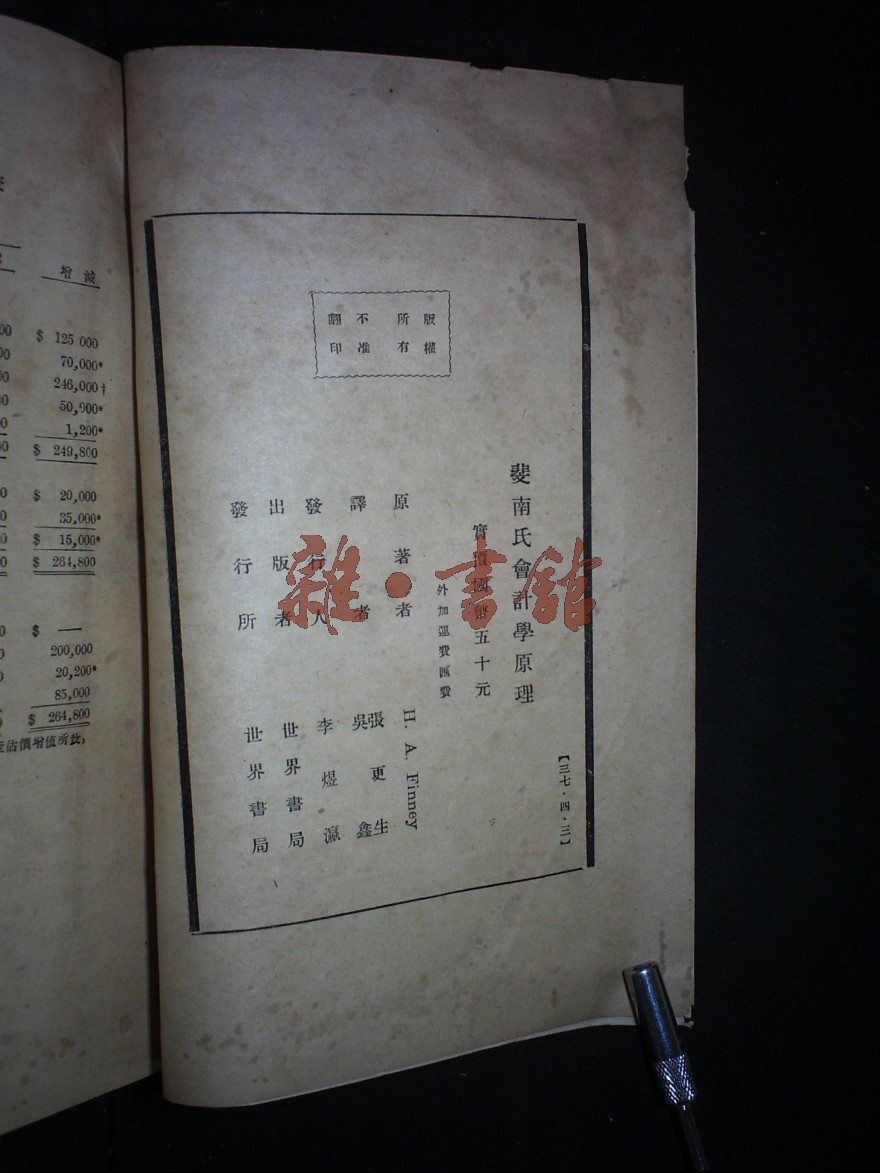 增減
$ 125 000
70,000*
246,000†
50,000*
1,200*
$ 249,800
$ 20,000
35,000*
$ 15,000*
$ 264,800
$ —
200,000
20,200*
85,000
$ 264,800
估價增值所致,
版權所有
不准翻印
斐南氏會計學原理
實價國幣五十元
外加運費匯費
【三七·四·三】
原著者 H. A. Finney
譯者 張更生 吳鑫
發行人 李煜瀛
出版者 世界書局
發行所 世界書局
雜·書館